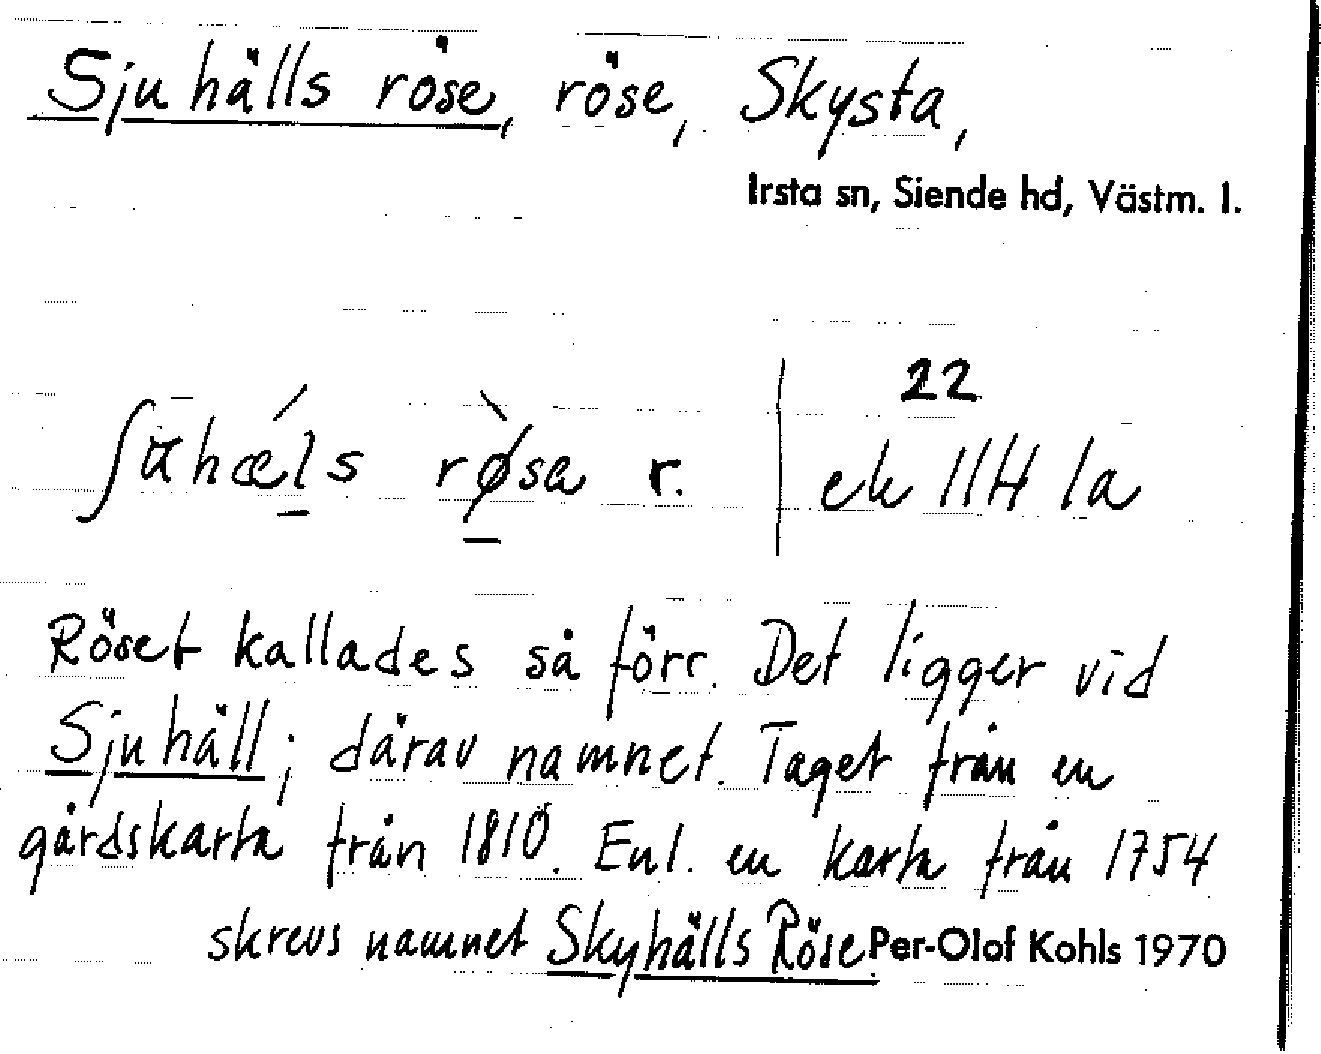 Sjuhälls röse, röse, Skysta,
Irsta sn, Siende hd, Västm. l.
22
r. ek 11H 1a
Röset kallades så förr. Det ligger vid
Sjuhäll; därav namnet. Taget från en
gårdskarta från 1810. Enl. en karta från 1754
skrevs namnet Skyhälls Röse Per-Olof Kohls 1970